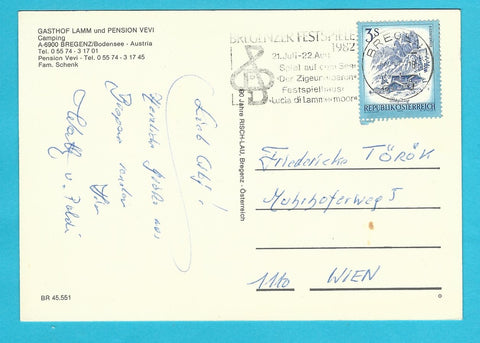 GASTHOF LAMM und PENSION VEVI
Camping
A-6900 BREGENZ/Bodensee - Austria
Tel. 0 55 74 - 3 17 01
Pension Vevi - Tel. 0 55 74 - 3 17 45
Fam. Schenk
BREGENZER FESTSPIELE
1982
21. Juli - 22. Aug.
Spiel auf dem See
"Der Zigeunerbaron"
Festspielhaus
"Lucia di Lammermoor"
3 S
REPUBLIK ÖSTERREICH
BREGENZ
80 Jahre RISCH-LAU, Bregenz - Österreich
Herzliche Grüße aus
Bregenz senden
Friedericke TÖRÖK
I
1110 WIEN
BR 45.551